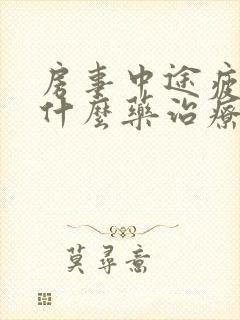 房事中途疲
什麼藥治療
莫尋喬